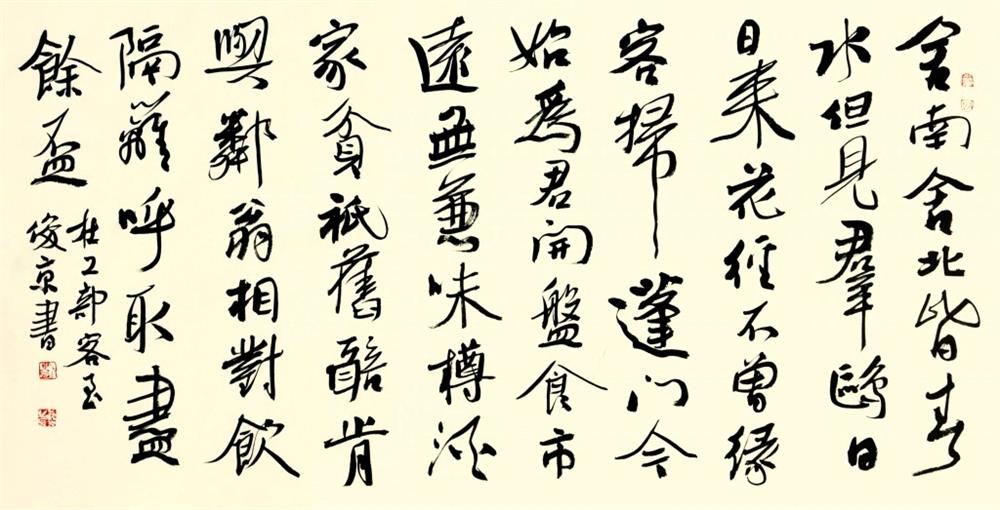 舍南舍北皆春
水但見羣鷗日
日来花徑不曾緣
客掃蓬門今
始爲君開盤食市
遠無兼味樽酒
家貧祇舊醅肯
與鄰翁相對飲
隔籬呼取盡
餘盃
杜工部客至
俊京書